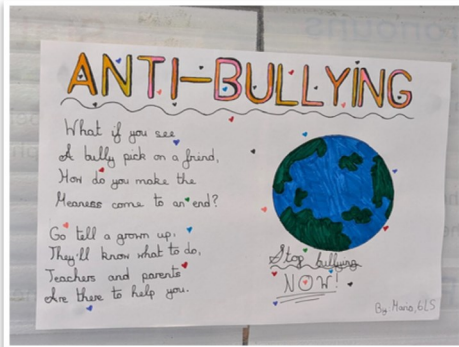 ANTI-BULLYING
What if you see
A bully pick on a friend,
How do you make the
Meaness come to an end?
Go tell a grown up,
They'll know what to do,
Teachers and parents
Are there to help you.
Stop bullying
NOW!
By: Maria, 6LS